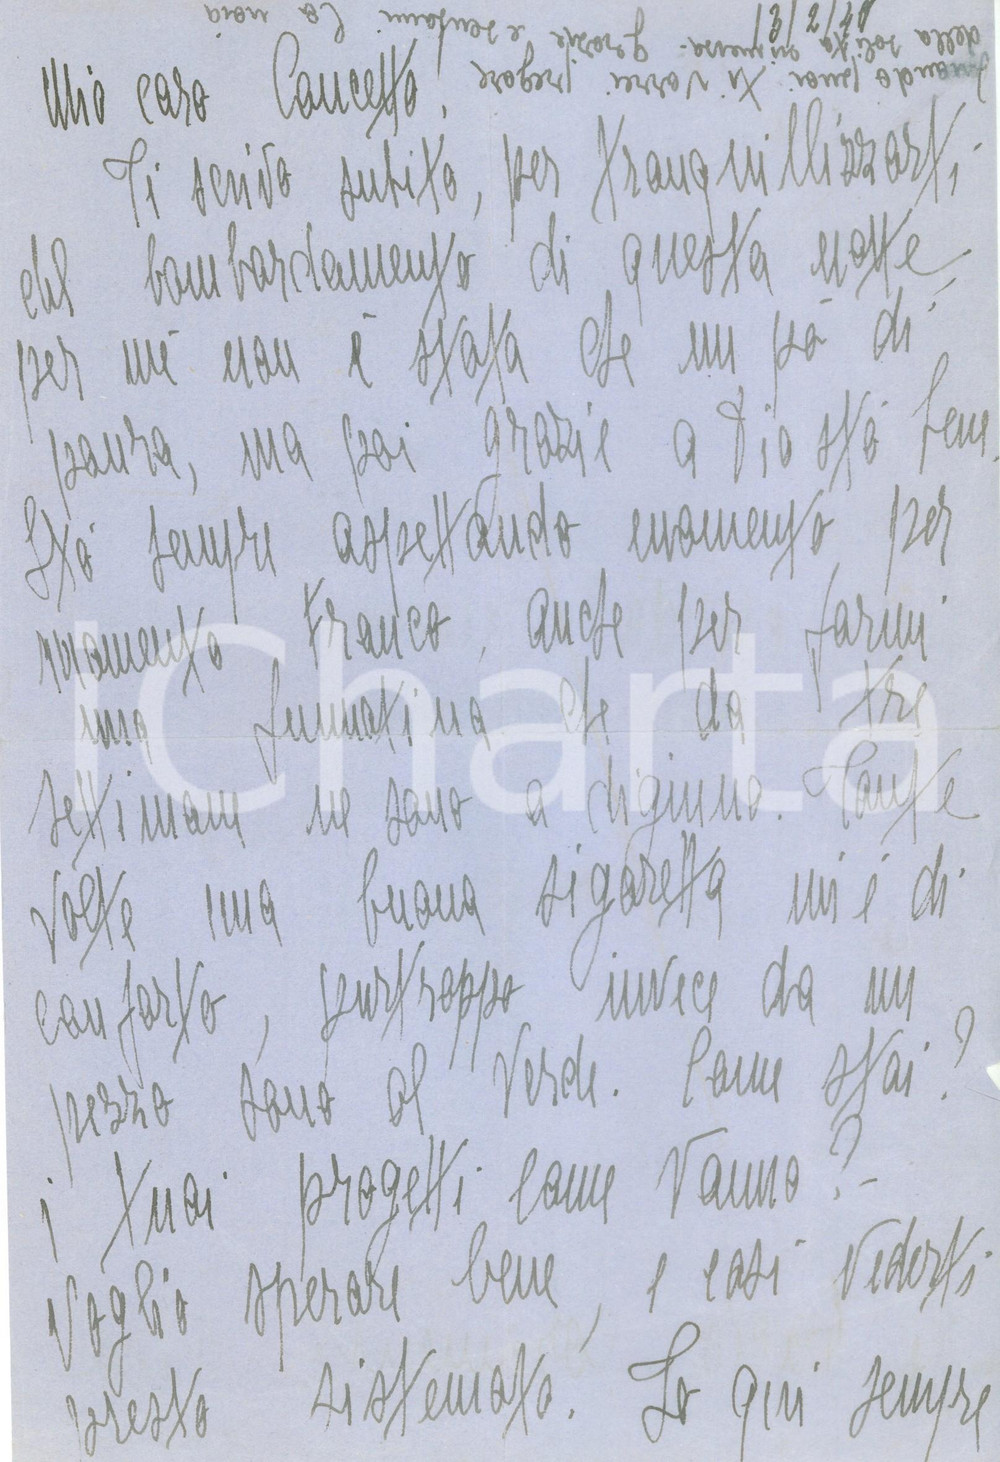 13/2/41
Mio caro Concetto!
Ti scrivo subito, per tranquillizzarti;
del bombardamento di questa notte,
per mè non è stata che un pò di
paura, ma poi grazie a Dio stò bene.
Stò sempre aspettando momento per
momento Franco, anche per farmi
una fumatina che da tre
settimane ne sono a digiuno. Tante
volte una buona sigaretta mi è di
conforto, purtroppo invece da un
pezzo sono al verde. Come stai?
i tuoi progetti come vanno?-
Voglio sperare bene, e così vederti
presto sistemato. Io qui sempre
Quando puoi ti vorrei pregare
della solita rimessa. grazie e scusami la noia
iCharta